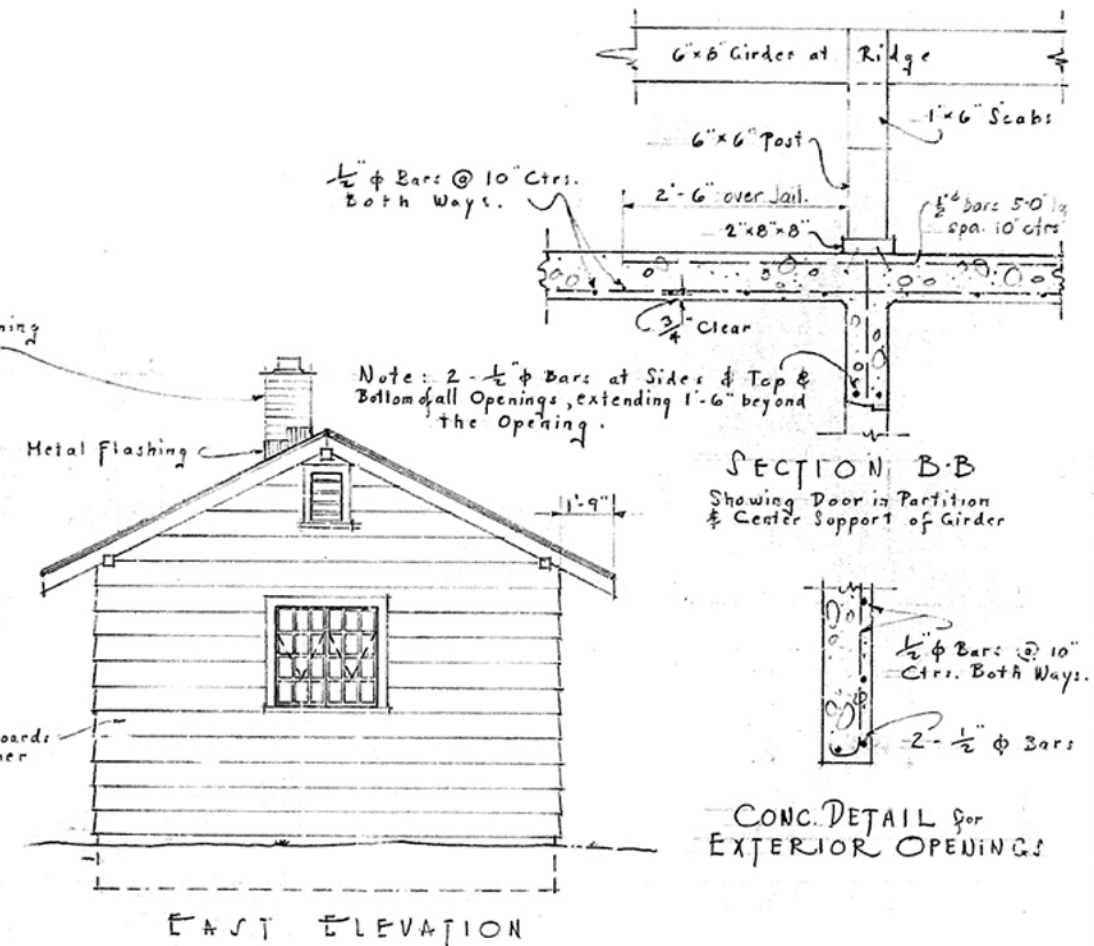 6"x8" Girder at Ridge
1"x6" Scabs
6"x6" Post
½" ϕ Bars @ 10" Ctrs.
Both Ways.
2'-6" over Jail.
½"ϕ bars 5-0" lg
spa. 10" ctrs
2"x8"x8"
¾" Clear
Note: 2 - ½" ϕ Bars at Sides & Top &
Bottom of all Openings, extending 1'-6" beyond
the Opening.
Metal Flashing
1'-9"
SECTION B-B
Showing Door in Partition
& Center Support of Girder
½" ϕ Bars @ 10"
Ctrs. Both Ways.
2 - ½" ϕ Bars
CONC. DETAIL for
EXTERIOR OPENINGS
EAST ELEVATION